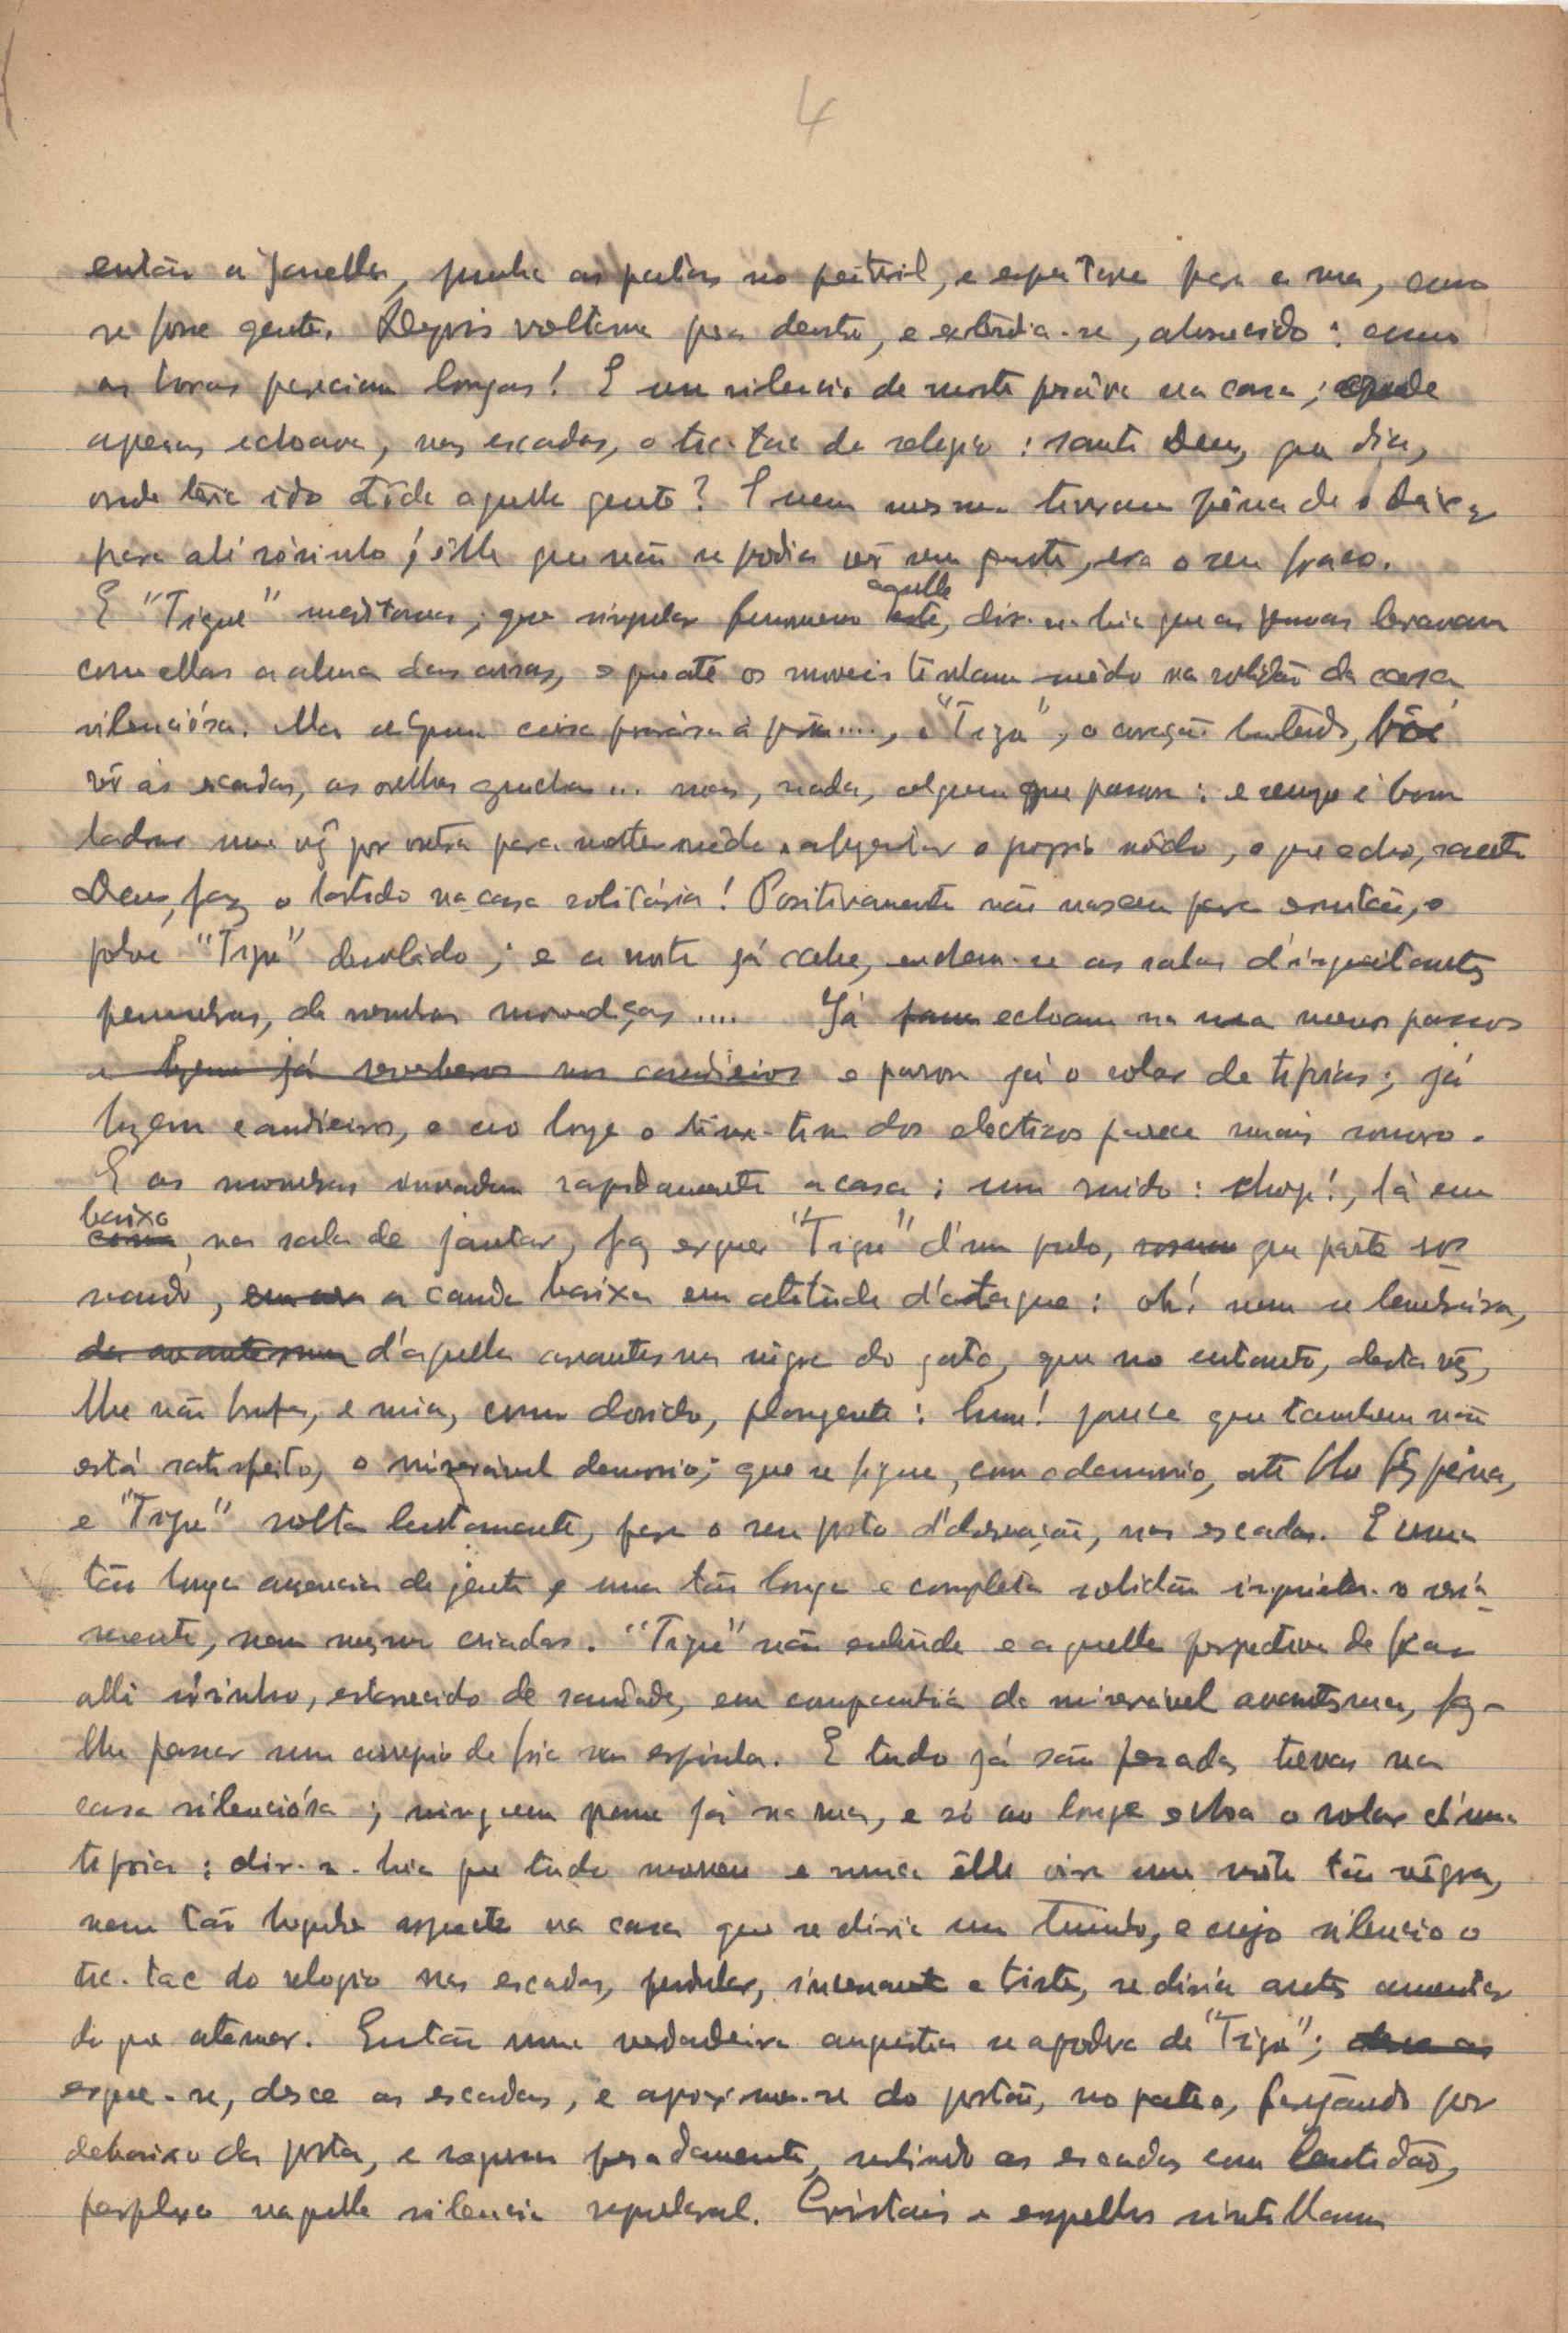 4
então a janella, punha as patas no peitoril, e espreitava para a rua, como
se fosse gente. Depois voltava para dentro, e estendia-se, aborrecido: como
as horas pareciam longas! E um silencio de morte pesáva na casa;
apenas echoava, nas escadas, o tic-tac do relogio: santo Deus, que dia,
onde teria ido tôda aquella gente? E nem mesmo tiveram pêna de o deixar
para ali sósinho, êlle que não se podia vêr sem gente, era o seu fraco.
E "Tigre" meditava; que singular fenomeno aquelle este, dir-se-hia que as pessoas levavam
com ellas a alma das coisas, e que até os moveis tinham mêdo na solidão da casa
silenciósa. Mas alguma coisa passára á porta...., e "Tigre", o coração batendo, vae
vêr ás escadas, as orelhas guichas... mas, nada, alguem que passou: e rouge é bom
ladrar uma vêz por outra para metter mêdo e afugentar o proprio mêdo, o que echo, santo
Deus, faz o latido na casa solitária! Positivamente não nasceu para ermitão, o
pobre "Tigre" desolado; e a noite já cahe, enchem-se as salas d'inquietantes
penumbras, de sombras movediças.... Já echoam na rua menos passos
e luzem já reverberos nos candieiros e parou já o rolar de tipoias; já
luzem candieiros, e ao longe o tim-tim dos electricos parece mais sonoro.
E as sombras invadem rapidamente a casa; um ruido: chop!, lá em
baixo
cima, na sala de jantar, faz erguer "Tigre" d'um pulo, que parte ros-
nando, a cauda baixa em atitude d'ataque: oh! nem se lembrára,
da avantesma d'aquella avantesma nêgra do gato, que no entanto, desta vêz,
lhe não bufa, e mia, como dorido, plangente: hum! parece que tambem não
está satisfeito, o miserável demonio; que se figure, com o demonio, até lhe fêz pêna,
e "Tigre" volta lentamente, para o seu posto d'observação, nas escadas. E uma
tão longa ausencia de gente e uma tão longa e completa solidão inquieta-o séria-
mente, nem mesmo criadas. "Tigre" não entende e aquella perspectiva de ficar
alli sósinho, esfarrecido de saudade, em companhia da miserável avantesma, faz-
lhe passar um arrepio de frio na espinha. E tudo já são pesadas trevas na
casa silenciósa; ninguem passa já na rua, e só ao longe echoa o rolar d'uma
tipoia: dir-se-hia que tudo morreu e nunca êlle vira uma noite tão nêgra,
nem tão lugubre aspecto na casa que se diria um tumulo, e cujo silencio o
tic-tac do relogio nas escadas, pendular, incessante e triste, se diria antes aumentar
do que atenuar. Então uma verdadeira angustia se apodera de "Tigre";
ergue-se, desce as escadas, e aproxima-se do portão, no pateo, farejando por
debaixo da porta, e regressa pesadamente, subindo as escadas com lentidão,
perplexo naquelle silencio sepulcral. Cristais e espelhos sintillam